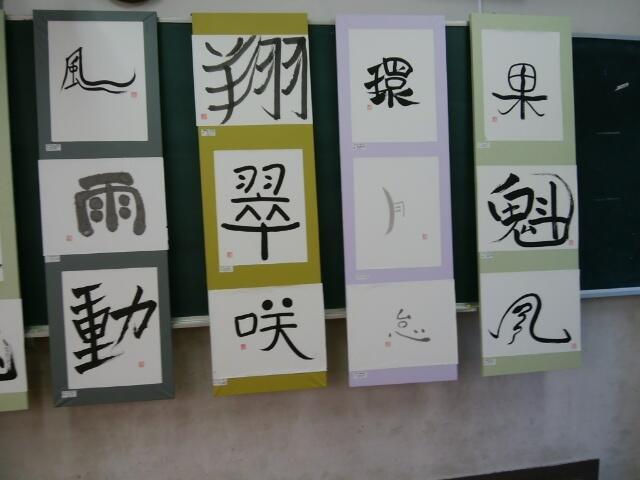 風
雨
動
翔
翠
咲
環
月
果
魁
風